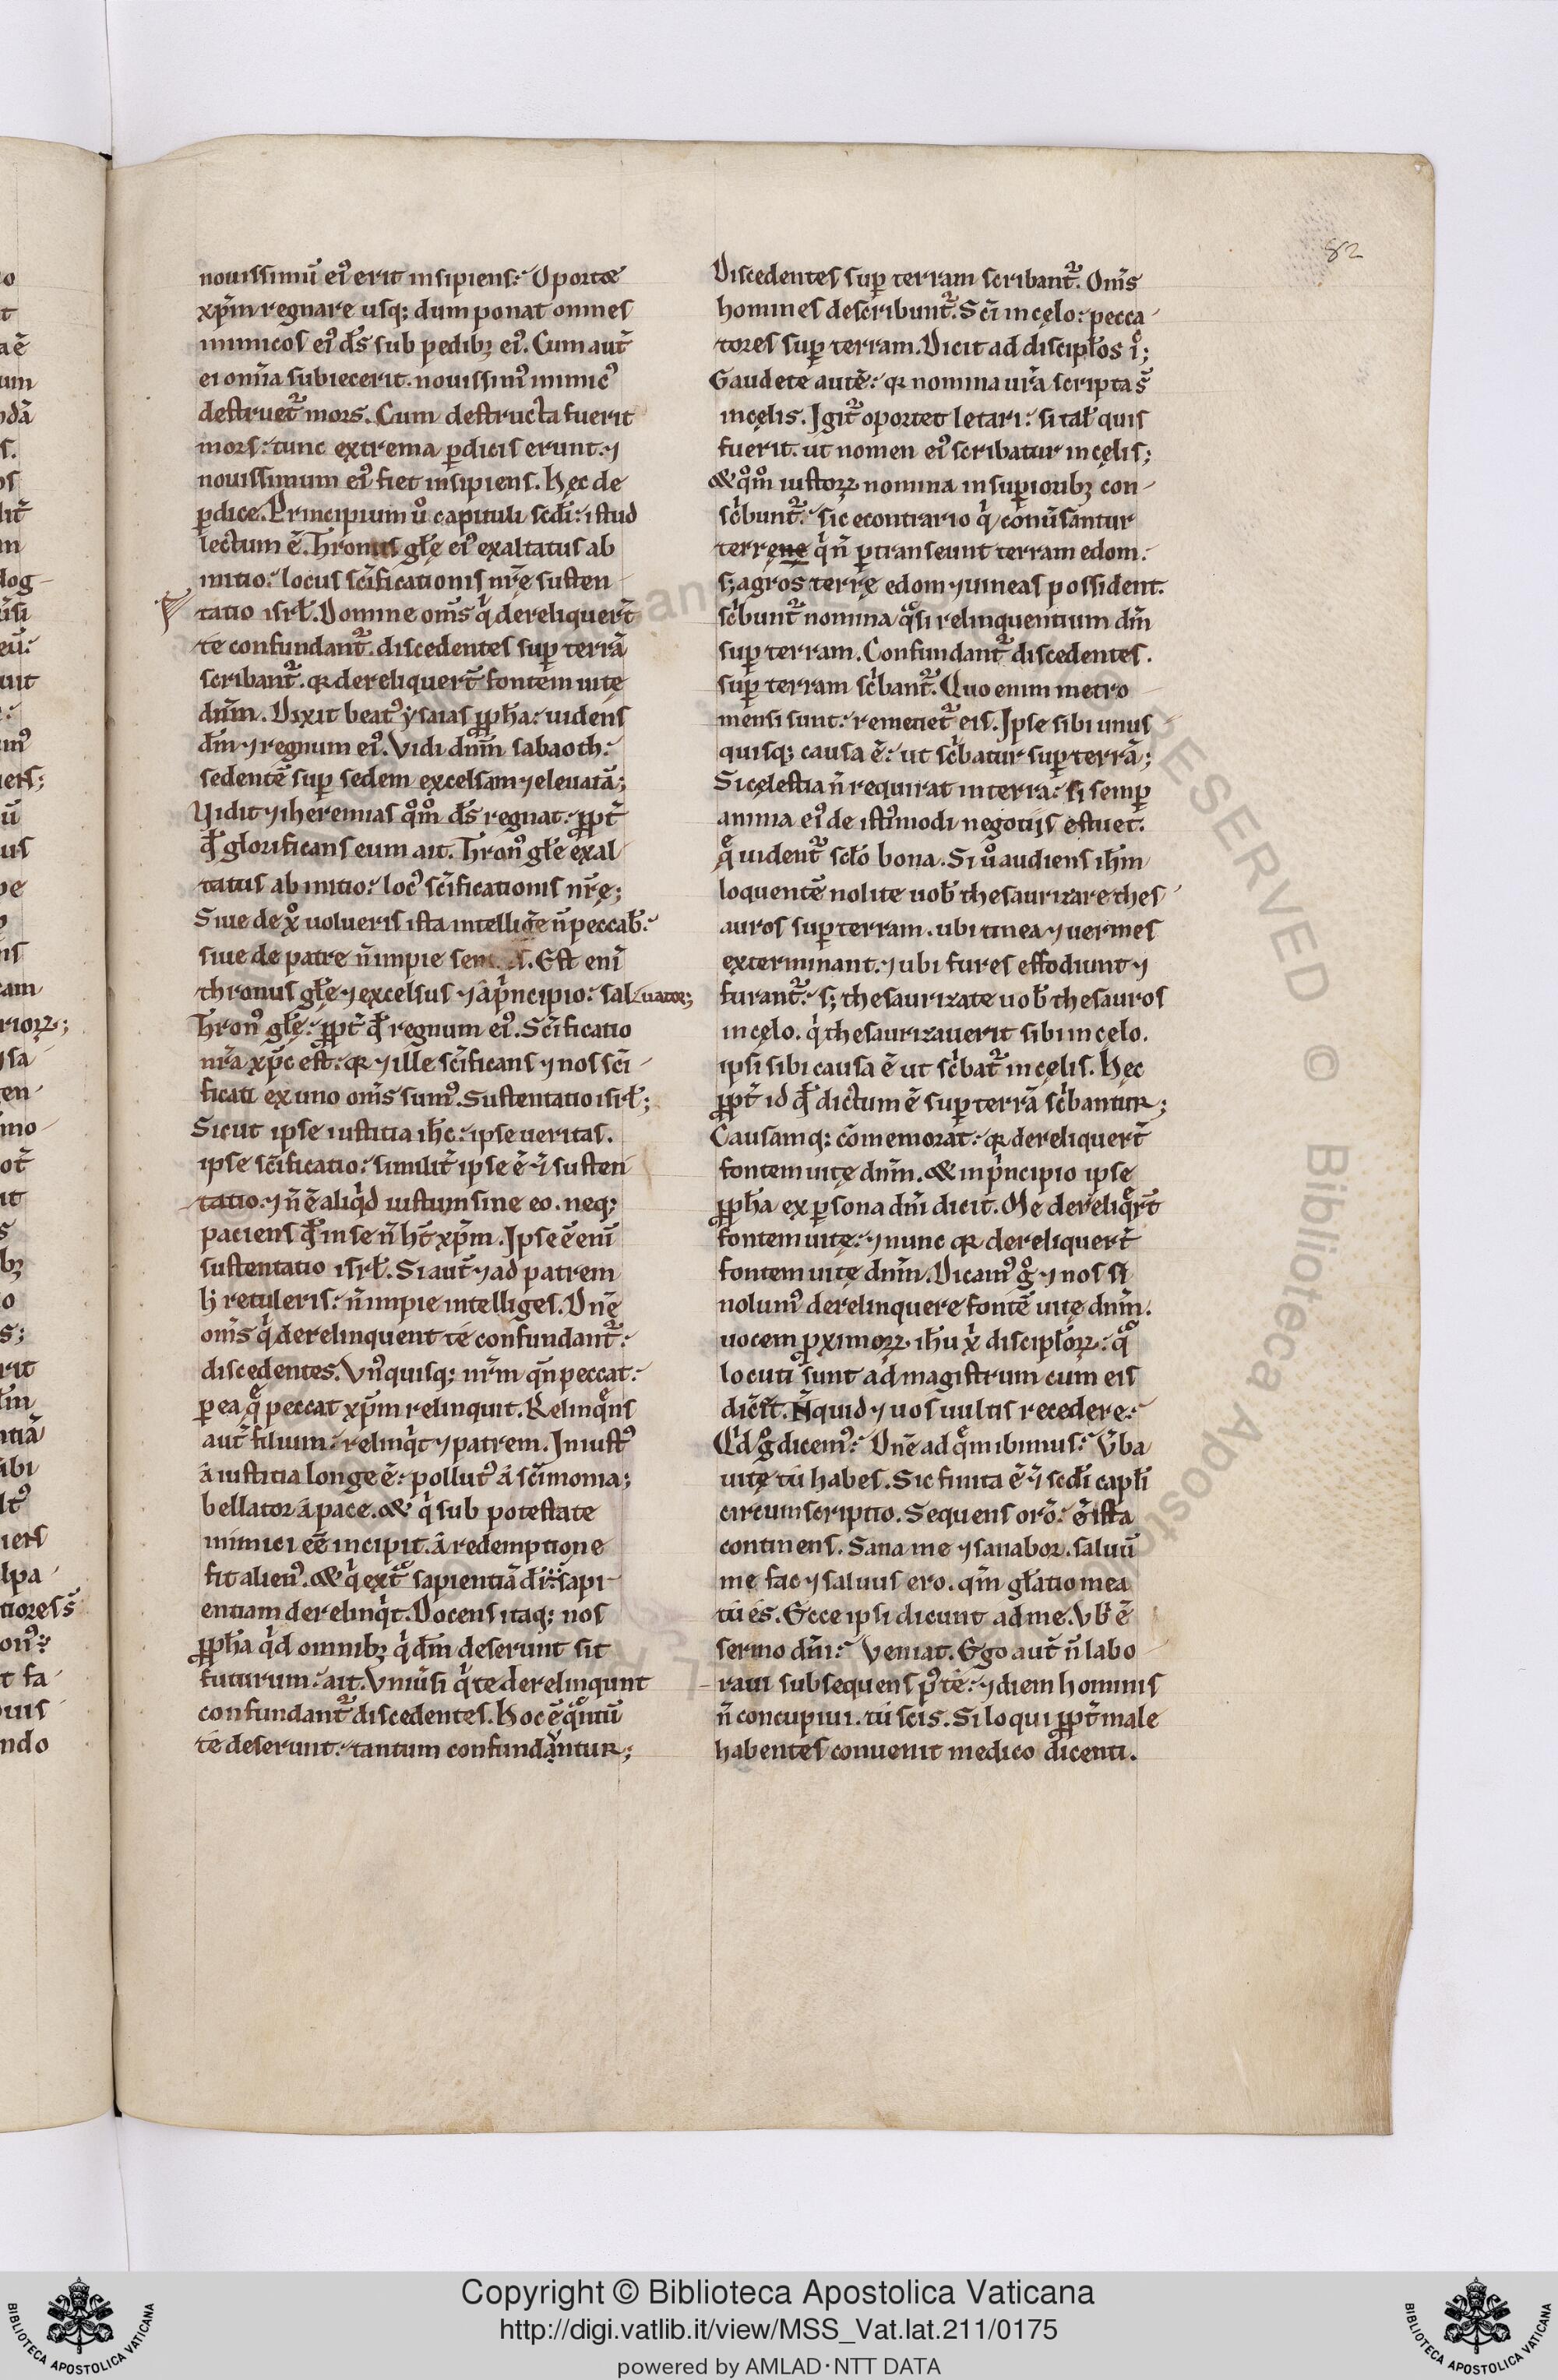 82
nouissimū eiꝰ erit insipiens. Oportet
xp̄m regnare usq; dum ponat omnes
inimicos eiꝰ d̄s sub pedibꝫ eiꝰ. Cum aut̄
ei om̄ia subiecerit. nouissimꝰ inimicꝰ
destruet᷑ mors. Cum destructa fuerit
mors: tunc extrema ꝑdicis erunt. ⁊
nouissimum eiꝰ fiet insipiens. Hęc de
ꝑdice. Principium uͦ capituli scd̄i: istud
lectum ē. Thronus gl̄ę eiꝰ exaltatus ab
initio: locus sc̄ificationis nr̄ę susten-
tatio isrł. Domine om̄s qͥ dereliquer̄t
te confundant᷑. discedentes suꝑ terrā
scribant᷑. qꝛ dereliquer̄t fontem uitę
dn̄m. Dixit beatꝰ ysaias ꝓph̄a: uidens
dm̄ ⁊ regnum eiꝰ. Vidi dn̄m sabaoth:
sedentē suꝑ sedem excelsam ⁊ eleuatā;
Vidit ⁊ iheremias qͦmͦ d̄s regnat: ꝓpt̄
qđ glorificans eum ait. Thronꝰ gl̄e exal-
tatus ab initio: locꝰ sc̄ificationis nr̄ę;
Siue de xͦ uolueris ista intelliḡe n̄ peccab̄:
siue de patre n̄ impie . Est enī
thronus gl̄e ⁊ excelsus ⁊ a pͥncipio: saluator;
Thronꝰ gl̄ę: ꝓpt̄ qđ regnum eiꝰ. Sc̄ificatio
nr̄a xp̄c est: qꝛ ⁊ ille sc̄ificans ⁊ nos sc̄i-
ficati ex uno om̄s sumꝰ. Sustentatio isrł;
Sicut ipse iustitia ih̄c: ipse ueritas.
ipse sc̄ificatio: similit̄ ipse ē ⁊ susten
tatio. ⁊ n̄ ē aliqͥd iustum sine eo. neq;
paciens qđ in se n̄ h̄t xp̄m. Ipse ē enī
sustentatio isrł. Si aut̄ ⁊ ad patrem
h̄ retuleris: n̄ impie intelliges. Dn̄ę
om̄s qͥ derelinquent te confundant᷑:
discedentes. Vnꝰquisq; nr̄m qn̄ peccat:
ꝑ ea qͣ peccat xp̄m relinquit. Relinqͣns
aut̄ filium: relinqͥt ⁊ patrem. Iniustꝰ
a iustitia longe ē: pollutꝰ a sc̄imonia;
bellator a pace. & qͥ sub potestate
inimici eē incipit. a redemptione
fit alienꝰ. & qͥ ext̄ sapientiā dī: sapi-
entiam derelinqͥt. Docens itaq; nos
ꝓph̄a qͥd omnibꝫ qͥ dm̄ deserunt sit
futurum: ait. Vniūsi qͥ te derelinqunt
confundant᷑ discedentes. Hoc ē qͣntū
te deserunt: tantum confundantur;
Discedentes suꝑ terram scribant᷑. Om̄s
homines describunt᷑. Sc̄i in cęlo: pecca-
tores suꝑ terram. Dicit ad discipłos iͨ;
Gaudete autē: qꝛ nomina ur̄a scripta s̄
in cęlis. Igit᷑ oportet letari: si tał quis
fuerit. ut nomen eiꝰ scribatur in cęlis;
& qͦmͦ iustoꝝ nomina in suꝑioribꝫ con-
scͥbunt᷑: sic econtrario qͥ conūsantur
terrene qͥ n̄ ꝑtranseunt terram edom:
s; agros terrę edom ⁊ uineas possident.
scͥbunt᷑ nomina qͣsi relinquentium dm̄
suꝑ terram. Confundant᷑ discedentes.
suꝑ terram scͥbant᷑. Quo enim metro
mensi sunt: remetiet᷑ eis. Ipse sibi unus-
quisq; causa ē: ut scͥbatur suꝑ terrā;
Si cęlestia n̄ requirat in terra: si semꝑ
anima eiꝰ de istiꝰmodi negotijs estuet.
qͤ uident᷑ scło bona. Si uͦ audiens ih̄m
loquentē nolite uob̄ thesaurizare thes-
auros suꝑ terram. ubi tinea ⁊ uermes
exterminant. ⁊ ubi fures effodiunt ⁊
furant᷑: s; thesaurizate uob̄ thesauros
in cęlo. qͥ thesaurizauerit sibi in cęlo.
ipsi sibi causa ē ut scͥbat᷑ in cęlis. Hęc
ꝓpt̄ id qđ dictum ē suꝑ terrā scͥbantur;
Causamq; cōmemorat: qꝛ dereliquer̄t
fontem uitę dn̄m. & in pͥncipio ipse
ꝓph̄a ex ꝑsona dn̄i dicit. Me dereliqͤr̄t
fontem uitę: ⁊ nunc qꝛ dereliquer̄t
fontem uitę dn̄m. Dicamꝰ gͦ ⁊ nos si
nolumꝰ derelinquere fontē uitę dn̄m.
uocem ꝓximoꝝ ih̄u xͥ discipłoꝝ: qͣ
locuti sunt ad magistrum cum eis
dic̄et. N̄quid ⁊ uos uultis recedere:
Qͥd gͦ dicemꝰ: Dn̄e ad qͤm ibimus: V̄ba
uitę tu habes. Sic finita ē ⁊ scd̄i capłi
circumscriptio. Sequens orō: ē ista
continens. Sana me ⁊ sanabor. saluū
me fac ⁊ saluus ero. qm̄ gl̄atio mea
tu es. Ecce ipsi dicunt ad me. Vb̄ ē
sermo dn̄i: Veniat. Ego aut̄ n̄ labo-
raui subsequens pꝰ te: ⁊ diem hominis
n̄ concupiui. tu scis. Si loqui ꝓpt̄ male
habentes conuenit medico dicenti.
Copyright © Biblioteca Apostolica Vaticana
http://digi.vatlib.it/view/MSS_Vat.lat.211/0175
powered by AMLAD·NTT DATA